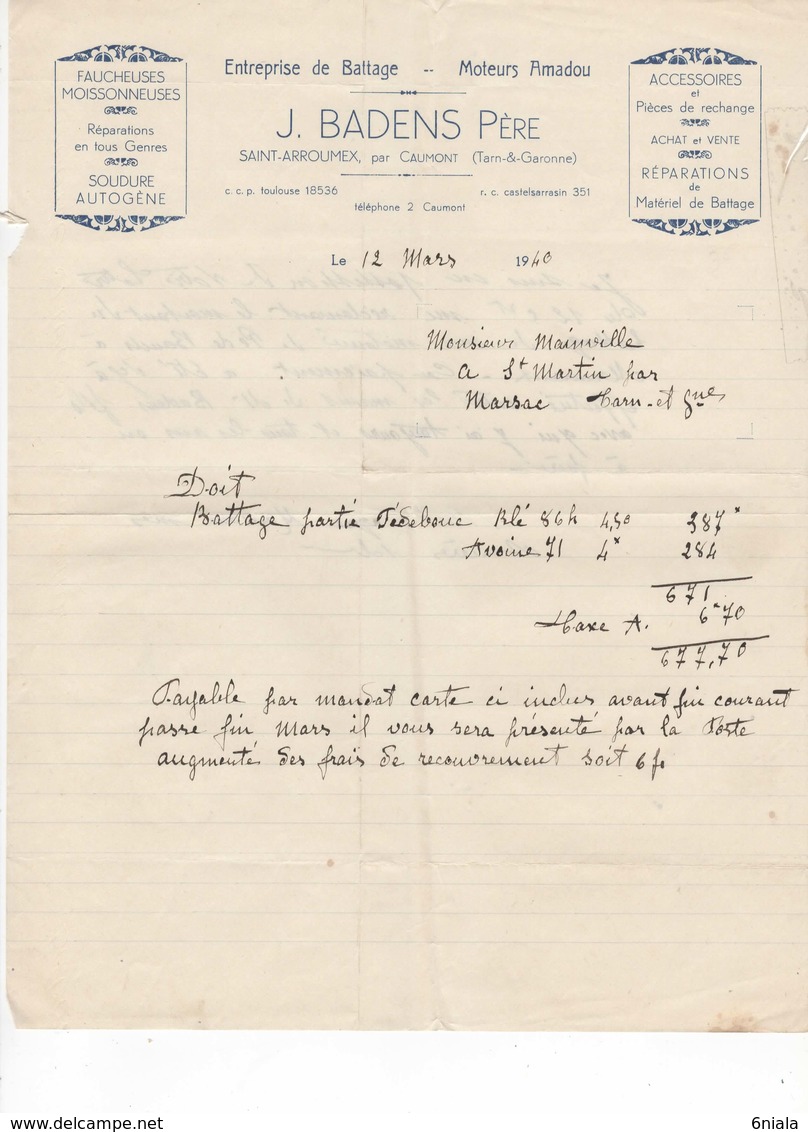 FAUCHEUSES
MOISSONNEUSES
Réparations
en tous Genres
SOUDURE
AUTOGÈNE
Entreprise de Battage -- Moteurs Amadou
J. BADENS PÈRE
SAINT-ARROUMEX, par CAUMONT (Tarn-&-Garonne)
c. c. p. toulouse 18536 r. c. castelsarrasin 351
téléphone 2 Caumont
ACCESSOIRES
et
Pièces de rechange
ACHAT et VENTE
RÉPARATIONS
de
Matériel de Battage
Le 12 Mars 1940
Monsieur Mainville
a St Martin par
Marsac Tarn-et Gne
Doit
Battage partie Tédebouc Blé 86h 4,50 387x
Avoine 71 4x 284
671
Taxe A. 6x70
677,70
Payable par mandat carte ci inclus avant fin courant
passe fin Mars il vous sera présenté par la Poste
augmenté des frais de recouvrement soit 6f
6niala